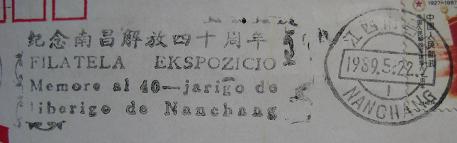 纪念南昌解放四十周年
FILATELA EKSPOZICIO
Memore al 40—jariĝo de
liberigo de Nanchang
江西
1989.5.22.
1
NANCHANG
1927-1987
中国人民邮政